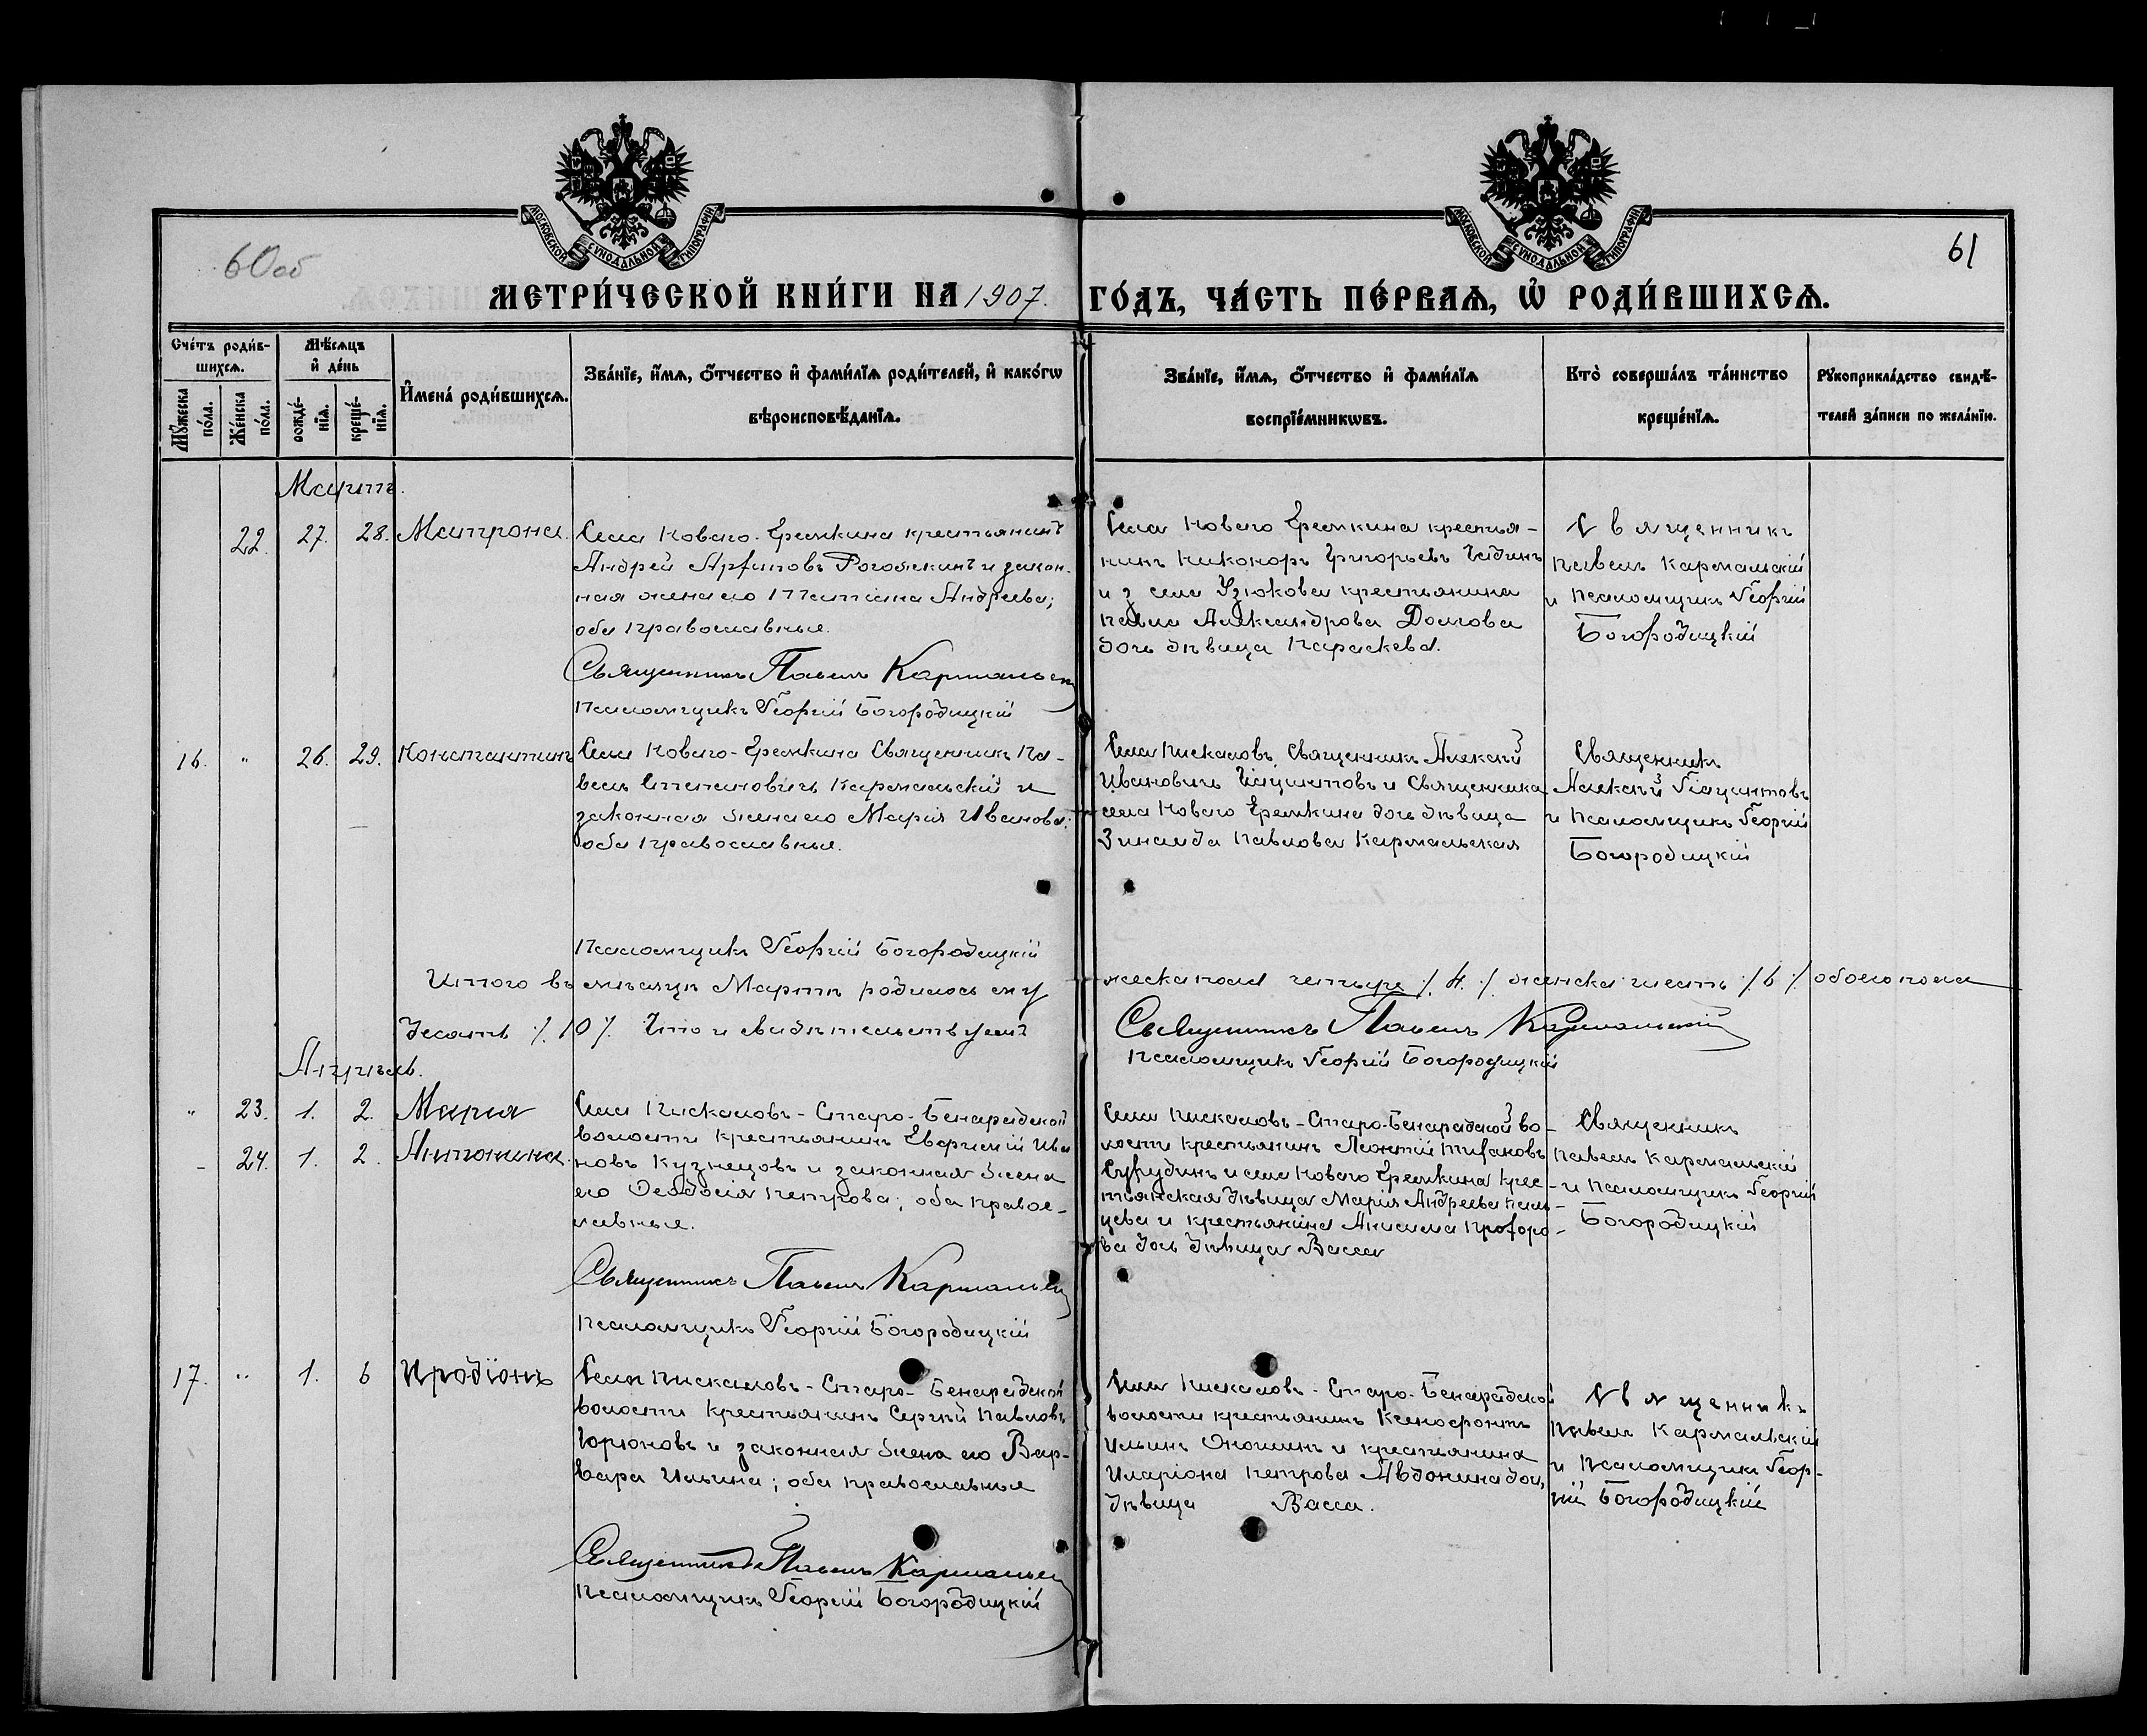 60об
61
МОСКОВСКОЙ СѴНОДАЛЬНОЙ ТИПОГРАФІИ
МОСКОВСКОЙ СѴНОДАЛЬНОЙ ТИПОГРАФІИ
МЕТРИ́ЧЕСКОЙ КНИ́ГИ НА 1907. ГО́ДЪ, ЧА́СТЬ ПЕ́РВАѦ, Ѡ҆ РОДИ́ВШИХСѦ.
Сче́тъ роди́в-
шихсѧ.
Мꙋ́жеска по́ла.
Же́нска по́ла.
Мѣ́сѧцъ
и҆ де́нь
рожде́-
нїѧ.
креще́-
нїѧ.
И҆мена̀ роди́вшихсѧ.
Зва́нїе, и҆́мѧ, ѻ҆́тчество и҆ фами́лїѧ роди́телей, и҆ како́гѡ
вѣроисповѣ́данїѧ.
Зва́нїе, и҆́мѧ, ѻ҆́тчество и҆ фами́лїѧ
воспрїе́мникѡвъ.
Кто̀ соверша́лъ та́инство
креще́нїѧ.
Рꙋкоприкла́дство свидѣ́-
телей за́писи по жела́нїю.
Мартъ.
22. 27. 28. Матрона.
Села Новаго-Еремкина крестьянинъ
Андрей Арѳиповъ Рогожкинъ и закон-
ная жена его Татіана Андреева;
оба православные.
Священникъ Павелъ Кармальскій
Псаломщикъ Георгій Богородицкій
Села Новаго Еремкина крестья-
нинъ Никоноръ Григорьевъ
и з села Узюкова крестьянина
Павла Александрова Долгова
дочь дѣвица Параскева.
Священникъ
Павелъ Кармальскій
и Псаломщикъ Георгій
Богородицкій
16. " 26. 29. Константинъ
Села Новаго-Еремкина Священникъ Па-
велъ Степановичъ Кармальскій и
законная жена его Марія Иванова;
оба православные.
Псаломщикъ Георгій Богородицкій
Села Пискаловъ, Священникъ Алексѣй
Ивановичъ Гіацинтовъ и Священника
села Новаго Еремкина дочь дѣвица
Зинаида Павлова Кармальская
Священникъ
Алексѣй Гіацинтовъ
и Псаломщикъ Георгій
Богородицкій
Итого въ мѣсяцѣ Мартѣ родилось му жеска пола четыре /. 4. /. женска шесть /. 6 /. обоего пола
десять /. 10 /. Что и свидѣтельствуемъ
Священникъ Павелъ Кармальскій
Псаломщикъ Георгій Богородицкій
Апрѣль.
" 23. 1. 2. Марія
- 24. 1. 2. Антонина.
Села Пискаловъ-Старо-Бенарадской
волости крестьянинъ Евфимій Ива
новъ Кузнецовъ и законная жена
его Ѳеодосія Петрова; оба правос-
лавные.
Священникъ Павелъ Кармальскій
Псаломщикъ Георгій Богородицкій
Села Пискаловъ-Старо-Бенарадской во-
лости крестьянинъ Леонтій
и села Новаго Еремкина крес-
тьянская дѣвица Марія Андреева
и крестьянина Анисима Прохоро-
ва дочь дѣвица Васса
Священникъ
Павелъ Кармальскій
и Псаломщикъ Георгій
Богородицкій
17. " 1. 6 Иродіонъ
Села Пискаловъ-Старо-Бенарадской
волости крестьянинъ Сергѣй Павловъ
Горюновъ и законная жена его Вар-
вара Ильина; оба православные
Священникъ Павелъ Кармальскій
Псаломщикъ Георгій Богородицкій
Села Пискаловъ-Старо-Бенарадской
волости крестьянинъ Ксенофонтъ
Ильинъ и крестьянина
Иларіона Петрова Авдонина дочь
дѣвица Васса.
Священникъ
Павелъ Кармальскій
и Псаломщикъ Геор-
гій Богородицкій